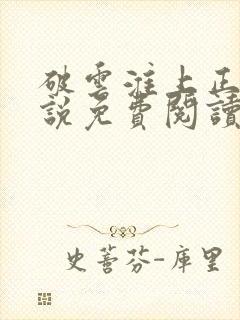 破雲淮上正
說免費閱讀
史蒂芬-庫里